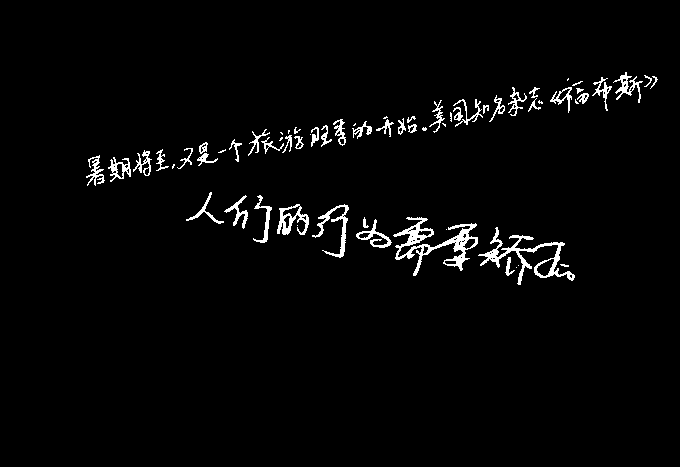 暑期将至，又是一个旅游旺季的开始。美国知名杂志《福布斯》
人们的行为需要矫正。